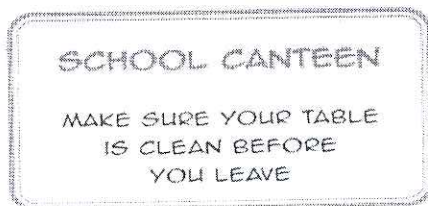 SCHOOL CANTEEN
MAKE SURE YOUR TABLE
IS CLEAN BEFORE
YOU LEAVE